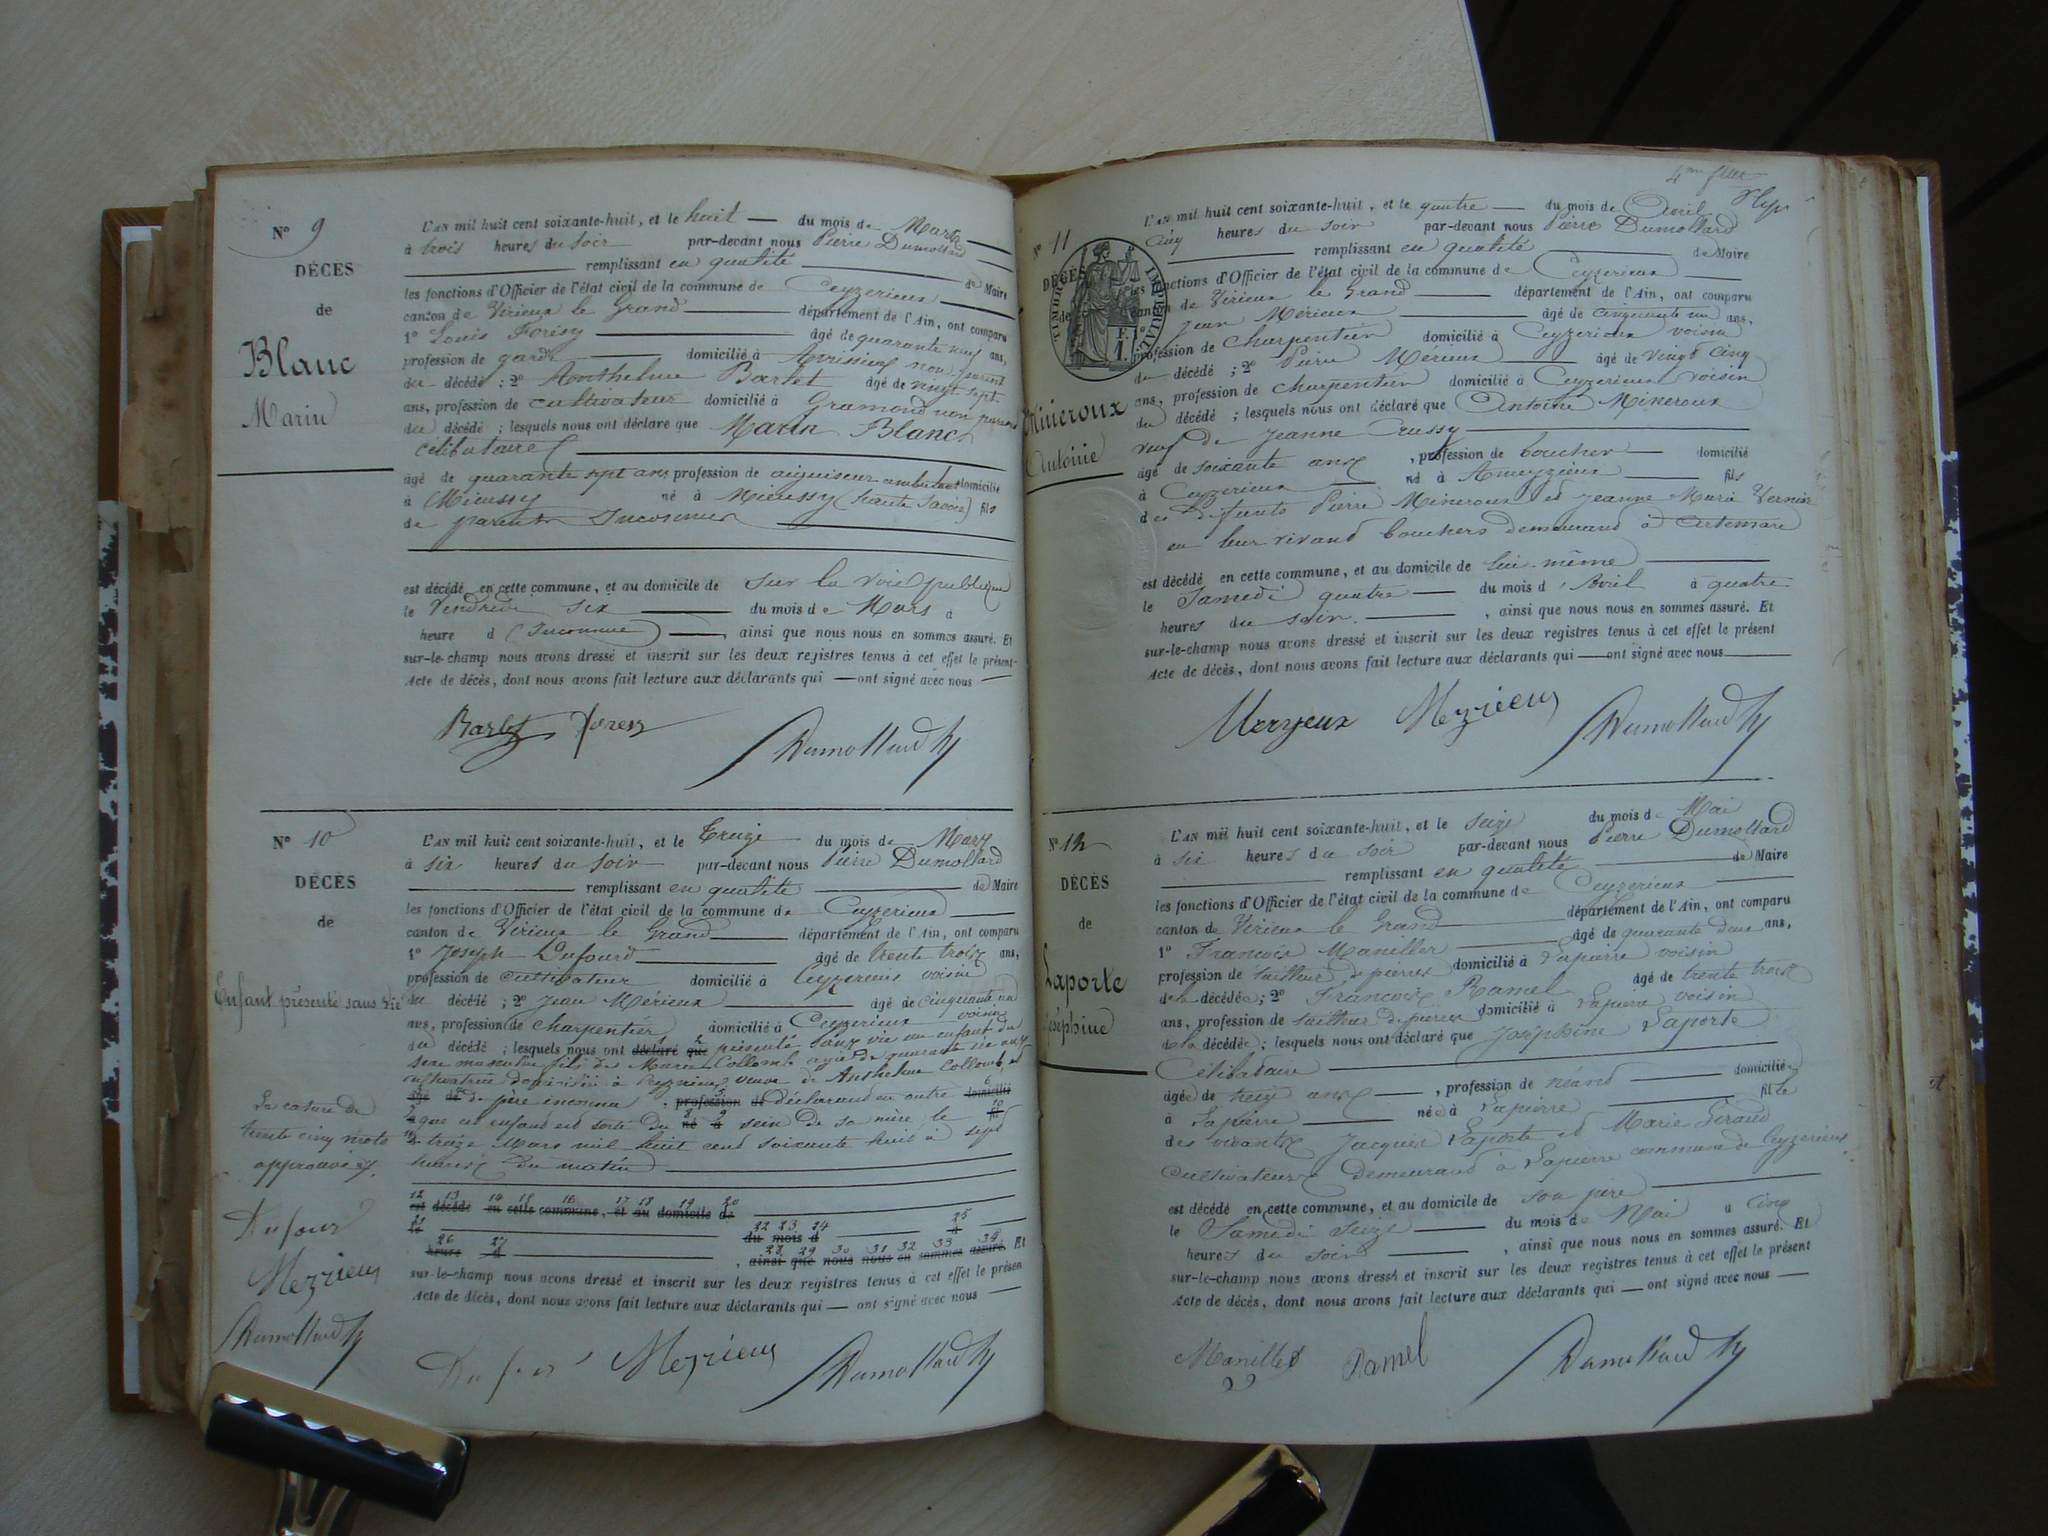 N° 9
DÉCÈS
de
Blanc
Marin
L'AN mil huit cent soixante-huit, et le huit du mois de Mars
à trois heures du soir par-devant nous Pierre Dumollard
remplissant en qualité de Maire
les fonctions d'Officier de l'état civil de la commune de Ceyzerieux
canton de Virieux le Grand département de l'Ain, ont comparu
1° Louis Forisy âgé de quarante neuf ans,
profession de garde domicilié à non parent
du décédé ; 2° Anthelme Barlet âgé de vingt sept
ans, profession de cultivateur domicilié à Gramond non parent
du décédé ; lesquels nous ont déclaré que Marin Blanc
célibataire
âgé de quarante sept ans, profession de aiguiseur ambulant domicilié
à Mieussy né à Mieussy (haute Savoie) fils
de parents Inconnus
est décédé en cette commune, et au domicile de sur la voie publique
le Vendredi six du mois de Mars à
heure d (Inconnue), ainsi que nous nous en sommes assuré. Et
sur-le-champ nous avons dressé et inscrit sur les deux registres tenus à cet effet le présent
Acte de décès, dont nous avons fait lecture aux déclarants qui ont signé avec nous
Barlet Foresy Dumollard
N° 10
DÉCÈS
de
Enfant présenté sans vie
La casure de
trente cinq mots
approuvées
Dufour
Mezzieux
Dumollard
L'AN mil huit cent soixante-huit, et le Treize du mois de Mars
à six heures du soir par-devant nous Pierre Dumollard
remplissant en qualité de Maire
les fonctions d'Officier de l'état civil de la commune de Ceyzerieux
canton de Virieux le Grand département de l'Ain, ont comparu
1° Joseph Dufourd âgé de trente trois ans,
profession de cultivateur domicilié à Ceyzerieux voisin
du décédé ; 2° Jean Mérieux âgé de cinquante un
ans, profession de charpentier domicilié à Ceyzerieux voisin
du décédé ; lesquels nous ont déclaré que présenté sans vie un enfant du
sexe masculin fils de Marie Collomb agée de quarante six ans
cultivatrice domiciliée à Ceyzerieux veuve de Anthelme Collomb, et
âgé de de père inconnu, profession de déclarand en outre domicilié
à que cet enfant est sorti du né à sein de sa mère le fil
de treize Mars mil huit cent soixante huit à sept
heures du matin
12 13 14 15 16 17 18 19 20
est décédé en cette commune, et au domicile de
21 22 23 24 25
le du mois d à
26 27 28 29 30 31 32 33 34
heure d, ainsi que nous nous en sommes assuré. Et
sur-le-champ nous avons dressé et inscrit sur les deux registres tenus à cet effet le présen
Acte de décès, dont nous avons fait lecture aux déclarants qui ont signé avec nous
Dufour Mezzieux Dumollard
4me
N° 11
DÉCÈS
de
TIMBRE IMPÉRIAL
1 F.
Mineroux
Antoine
L'AN mil huit cent soixante-huit, et le quatre du mois de Avril
à cinq heures du soir par-devant nous Pierre Dumollard
remplissant en qualité de Maire
les fonctions d'Officier de l'état civil de la commune de Ceyzerieux
canton de Virieux le Grand département de l'Ain, ont comparu
1° Jean Mérieux âgé de cinquante un ans,
profession de charpentier domicilié à Ceyzerieux voisin
du décédé ; 2° Pierre Mérieux âgé de vingt cinq
ans, profession de charpentier domicilié à Ceyzerieux voisin
du décédé ; lesquels nous ont déclaré que Antoine Mineroux
veuf de Jeanne Crussy
âgé de soixante ans, profession de boucher domicilié
à Ceyzerieux né à Ameyzieux fils
des défunts Pierre Mineroux et Jeanne Marie Vernier
en leur vivand bouchers demeurand à Artemare
est décédé en cette commune, et au domicile de lui-même
le Samedi quatre du mois d'Avril à quatre
heures du soir, ainsi que nous nous en sommes assuré. Et
sur-le-champ nous avons dressé et inscrit sur les deux registres tenus à cet effet le présent
Acte de décès, dont nous avons fait lecture aux déclarants qui ont signé avec nous
Meryeux Mezzieux Dumollard
N° 12
DÉCÈS
de
Laporte
Joséphine
L'AN mil huit cent soixante-huit, et le seize du mois de Mai
à six heures du soir par-devant nous Pierre Dumollard
remplissant en qualité de Maire
les fonctions d'Officier de l'état civil de la commune de Ceyzerieux
canton de Virieux le Grand département de l'Ain, ont comparu
1° François Maniller âgé de quarante deux ans,
profession de tailleur de pierres domicilié à Lapierre voisin
de la décédée ; 2° François Ramel âgé de trente trois
ans, profession de tailleur de pierres domicilié à Lapierre voisin
de la décédée ; lesquels nous ont déclaré que Joséphine Laporte
Célibataire
âgée de seize ans, profession de néand domiciliée
à Lapierre née à Lapierre fille
des vivants Jacques Laporte et Marie Giraud
Cultivateurs demeurand à Lapierre commune de Ceyzerieux
est décédé en cette commune, et au domicile de son père
le Samedi Seize du mois de Mai à cinq
heures du soir, ainsi que nous nous en sommes assuré. Et
sur-le-champ nous avons dressé et inscrit sur les deux registres tenus à cet effet le présent
Acte de décès, dont nous avons fait lecture aux déclarants qui ont signé avec nous
Maniller Ramel Dumollard